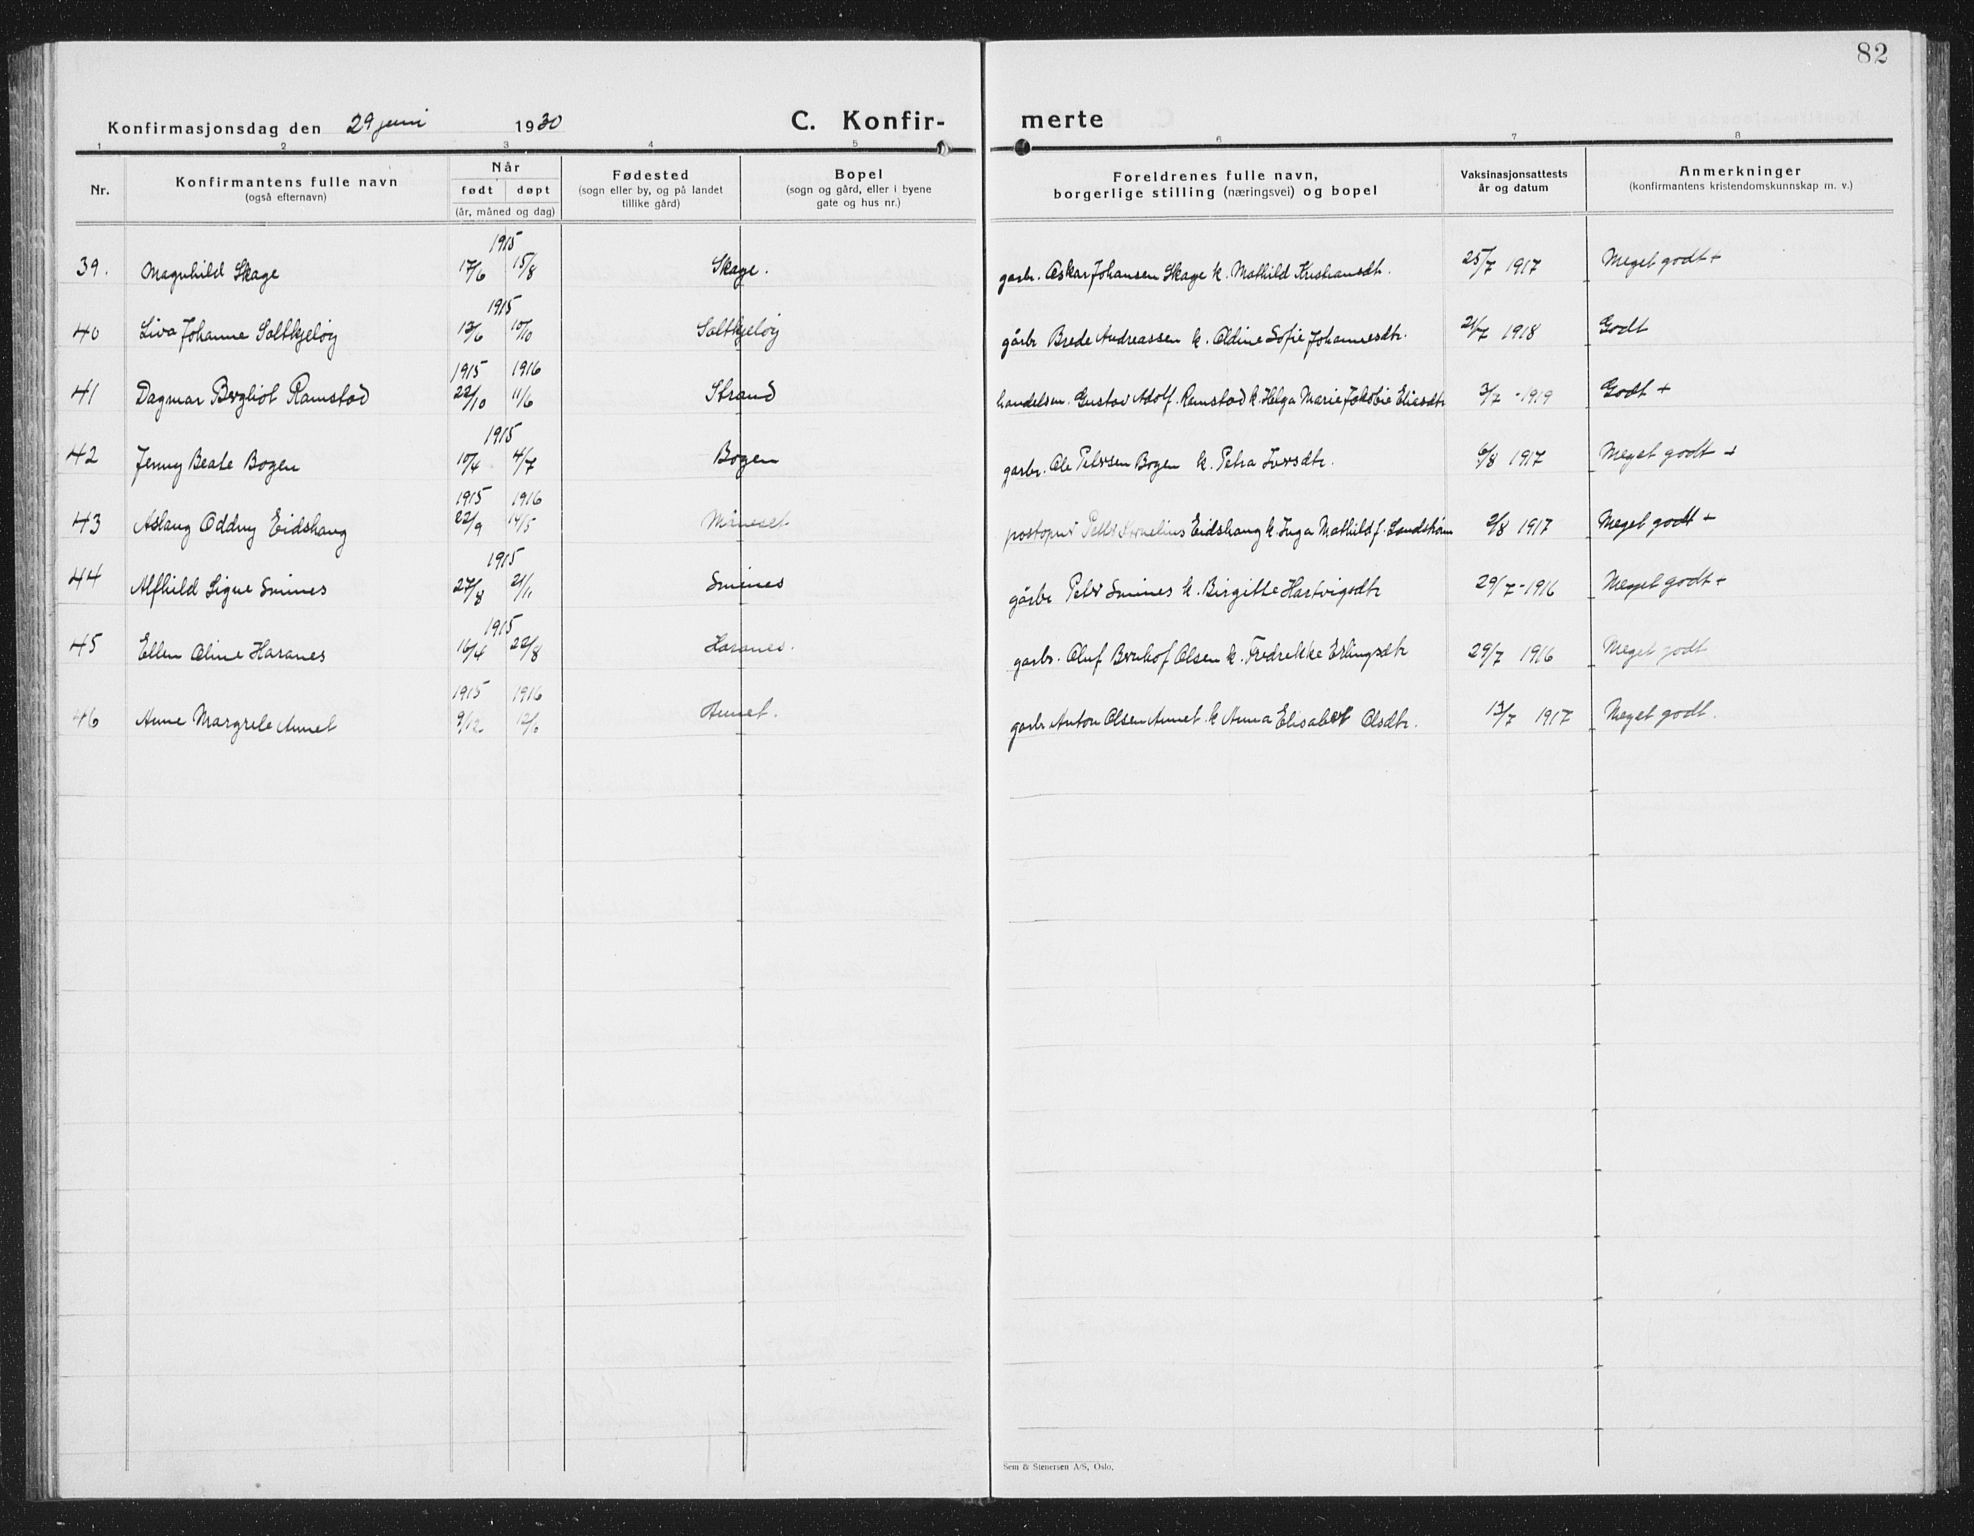 82
Konfirmasjonsdag den 29 juni 1930 C. Konfir- merte
1 2 3 4 5 6 7 8
Nr. Konfirmantens fulle navn (også efternavn) Når født døpt (år, måned og dag) Fødested (sogn eller by, og på landet tillike gård) Bopel (sogn og gård, eller i byene gate og hus nr.) Foreldrenes fulle navn, borgerlige stilling (næringsvei) og bopel Vaksinasjonsattests år og datum Anmerkninger (konfirmantens kristendomskunnskap m. v.)
1915
39. Magnhild Skage 17/6 15/8 Skage. garbr. Oskar Johansen Skage k. Mathild Kristiansdtr. 25/7 1917 Meget godt +
1915
40 Liva Johanne Saltkjeløy 13/6 10/10 Saltkjeløy gårbr Brede Andreassen k. Oldine Sofie Johannesdtr. 21/7 1918 Godt
1915 1916
41 Dagmar Bergliot Ramstad 22/10 11/6 Strand handelsm. Gustav Adolf Ramstad k. Helga Marie Jakobie Eliasdtr 3/7 - 1919 Godt +
1915
42 Jenny Beate Bogen 10/4 4/7 Bogen garbr. Ole Petersen Bogen k. Petra Iversdtr. 6/8 1917 Meget godt +
1915 1916
43 Aslaug Oddny Eidshaug 22/9 14/5 postopn Peter Kornelius Eidshaug k. Inga Mathild f. 2/8 1917 Meget godt +
1915
44 Alfhild Signe Smines 27/8 21/11 Smines gårbr Peter Smines k. Birgitte Hartvigsdtr 29/7 - 1916 Meget godt +
1915
45 Ellen Oline Haranes 16/4 22/8 Haranes. garbr. Oluf Bernhof Olsen k. Fredrekke Erlingsdtr 29/7 1916 Meget godt
1915 1916
46 Anne Margrete Aunet 9/12 12/6 Aunet. garbr Anton Olsen Aunet k Anna Elisabet Olsdtr. 13/7 1917 Meget godt.
Sem & Stenersen A/S, Oslo.